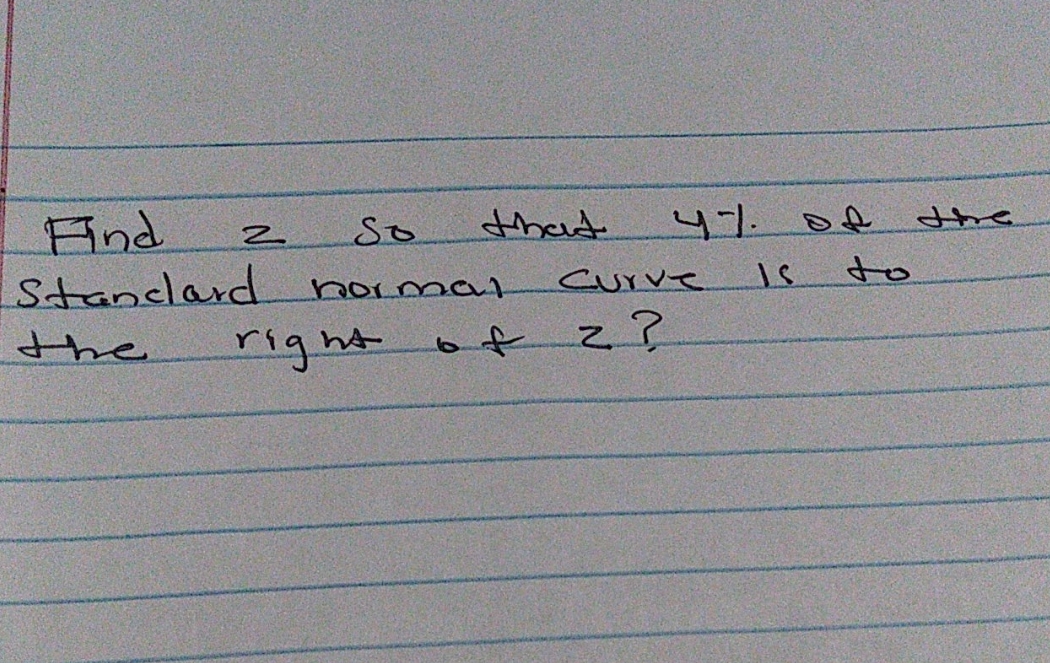 Find z so that 4% of the
standard normal curve is to
the right of z?